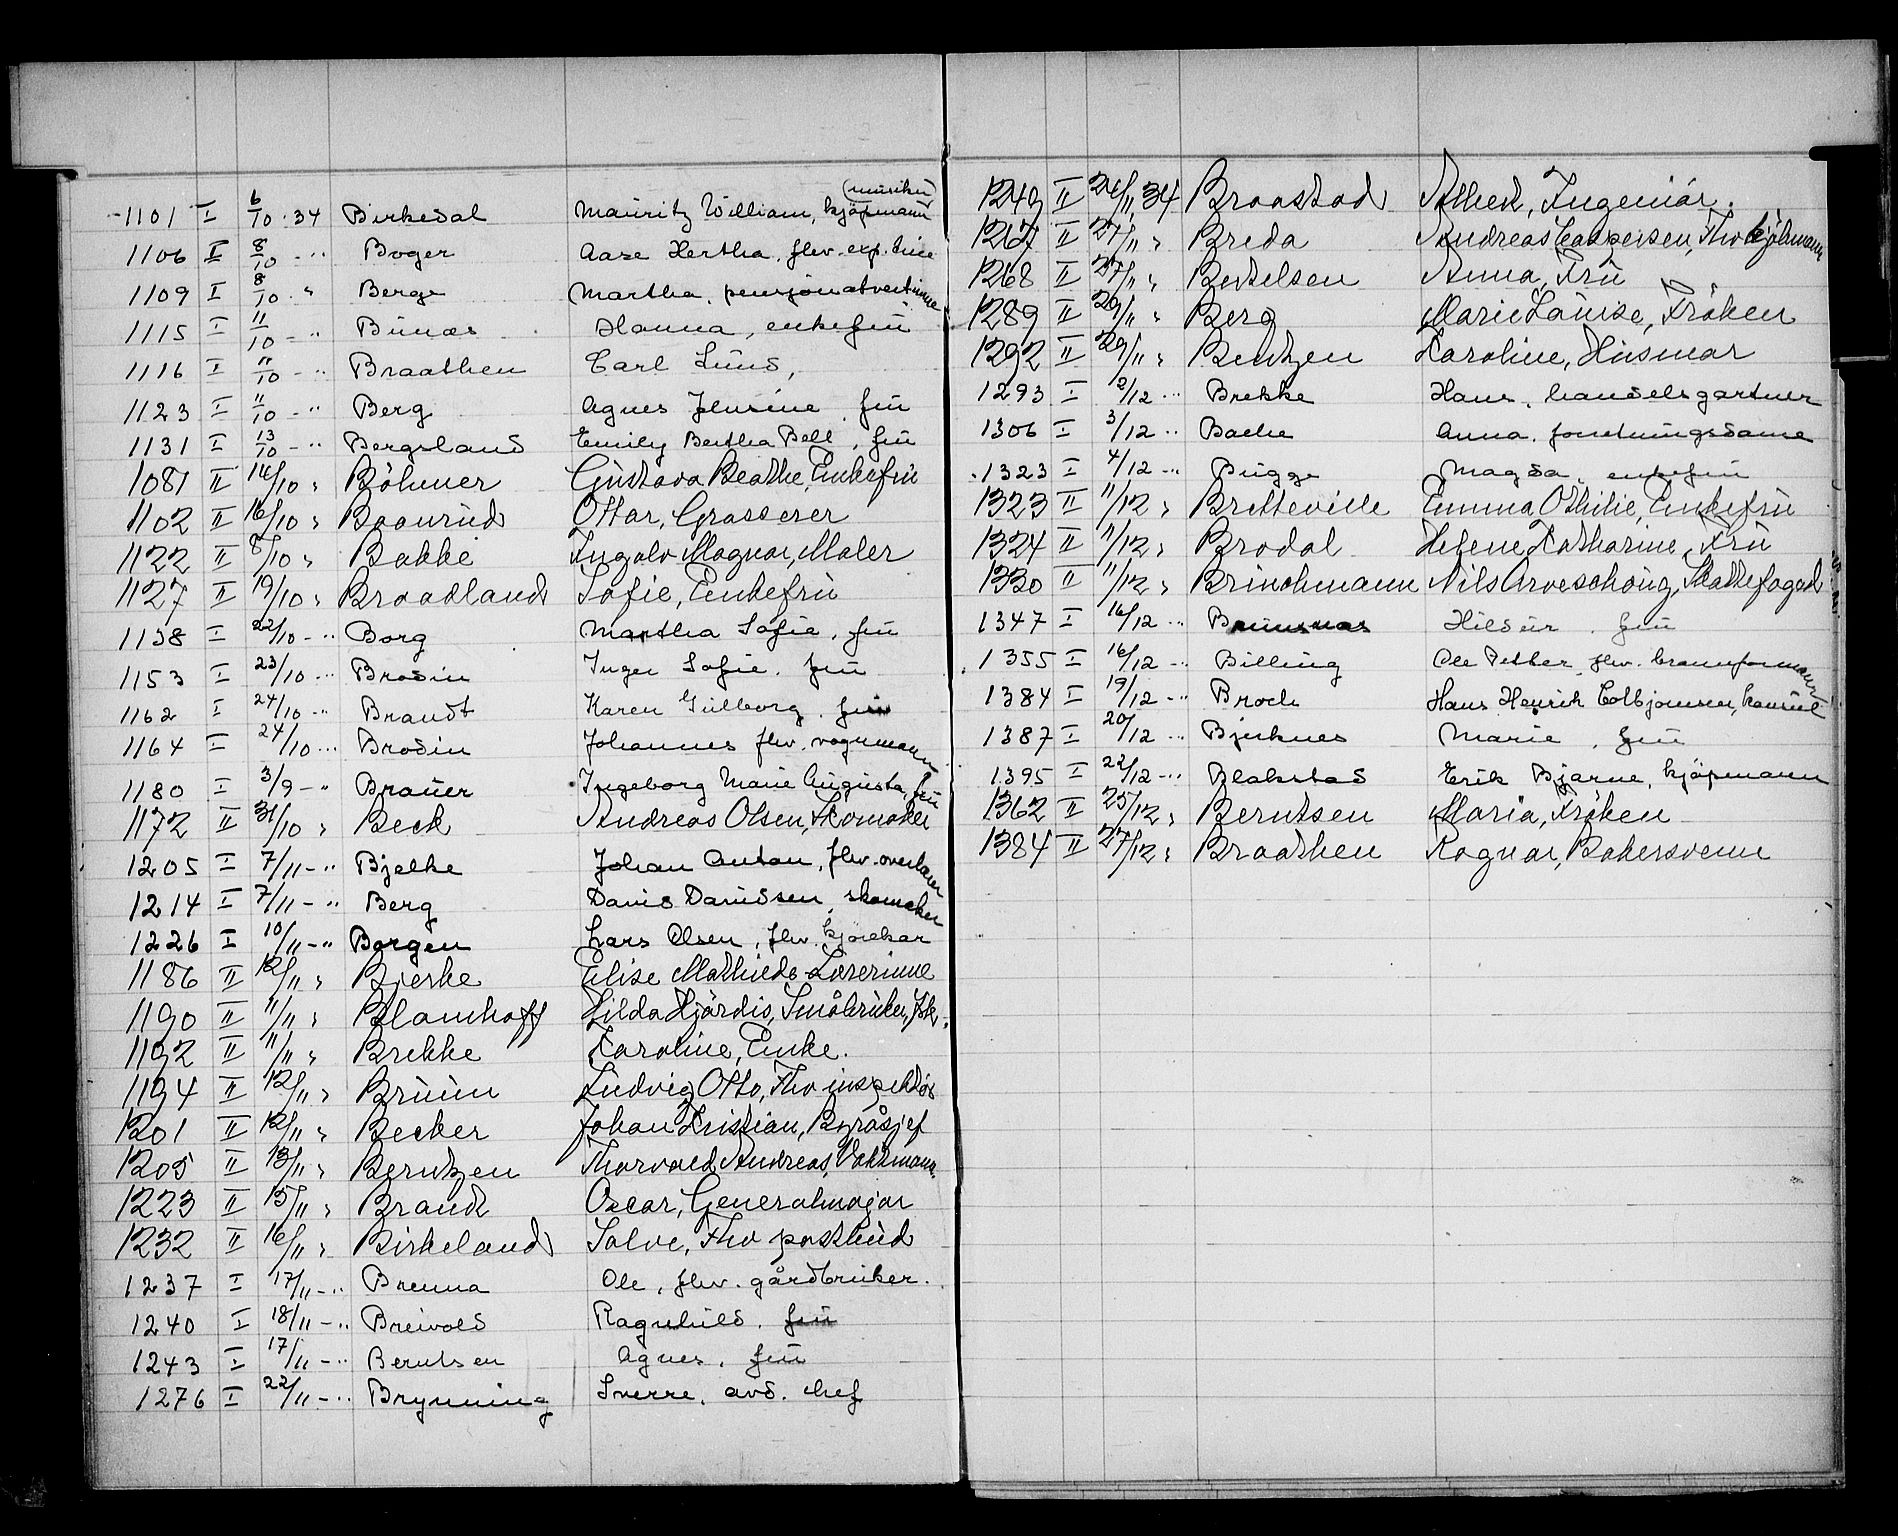 (musiker)
1101 I 6/10 · 34 Birkedal Mauritz William, kjøpmann
1106 II 8/10 - " Boger Aase Hertha, fhv. exp. trice
1109 I 8/10 · " Berge Martha, pensjonatvertinne
1115 I 11/10 - " Bunæs Hanna, enkefru
1116 I 11/10 - " Braathen Carl Lund,
1123 I 11/10 - " Berg Agnes Jensine, fru
1131 I 13/10 - " Bergsland Emily Bertha Bell, fru
1081 II 14/10 " Böhmer Gustava Beathe, Enkefru
1102 II 16/10 " Baanrud Ottar, Grosserer
1122 II 8/10 " Bakke Ingolv Magnar, Maler
1127 II 19/10 " Braadland Sofie, Enkefru
1138 I 22/10 - " Borg Martha Sofie, fru
1153 I 23/10 - " Brodin Inger Sofie, fru
1162 I 24/10 - " Brandt Karen Gulborg, fru
1164 I 24/10 - " Brodin Johannes fhv. vognmann
1180 I 3/9 - " Brauer Ingeborg Marie Augusta, fru
1172 II 31/10 " Beck Andreas Olsen, Skomaker
1205 I 7/11 - " Bjelke Johan Anton, fhv. overlærer
1214 I 7/11 - " Berg David Davidsen, skomaker
1226 I 10/11 - " Borgen Lars Olsen, fhv. kjørekar
1186 II 12/11 " Bjerke Elise Mathilde Lærerinne
1190 II 11/11 " Blamhoff Hilda Hjördis, Småbruker,
1192 II 11/11 " Brekke Karoline, Enke.
1194 II 12/11 " Bruun Ludvig Otto, Fhv inspektør
1201 II 12/11 " Becker Johan Kristian, Byråsjef
1205 II 13/11 " Berntzen Thorvald Andreas, Vaktmann
1223 II 15/11 " Brandt Oscar, Generalmajor
1232 II 16/11 " Birkeland Salve, Fhv postbud
1237 I 17/11 - " Brenna Ole, fhv. gårdbruker.
1240 I 18/11 - " Breivold Ragnhild, fru
1243 I 17/11 - " Berntsen Agnes, fru
1276 I 22/11 - " Brynning Sverre, avd. chef
1249 II 24/11 34 Braastad Albert, Ingeniör.
1267 II 27/11 " Breda Andreas Caspersen, Fhv kjöbmann
1268 II 27/11 " Bertelsen Anna, Fru
1289 II 29/11 " Berg Marie Louise, Fröken
1292 II 29/11 " Bentzen Karoline, Husmor
1293 I 2/12 - " Brekke Hans, handelsgartner
1306 I 3/12 " Bache Anna, forretningsdame
1323 I 4/12 - " Bugge Magda, enkefru
1323 II 11/12 " Bretteville Emma Othilie, Enkefru
1324 II 11/12 " Brodal Helene Katharine, Fru
1330 II 11/12 " Brinchmann Nils Arveschoug, Skattefogd
1347 I 16/12 " Brunsnæs Hildur, fru
1355 I 16/12 - " Billing Ole Petter, fhv. brannformann
1384 I 19/12 - " Broch Hans Henrik Colbjørnsen, konsul
1387 I 20/12 - " Bjerknes Marie, fru
1395 I 22/12 - " Blakstad Erik Bjarne, kjøpmann
1362 II 25/12 " Berntsen Maria, Fröken
1384 II 27/12 " Braathen Ragnar, Bakersvenn